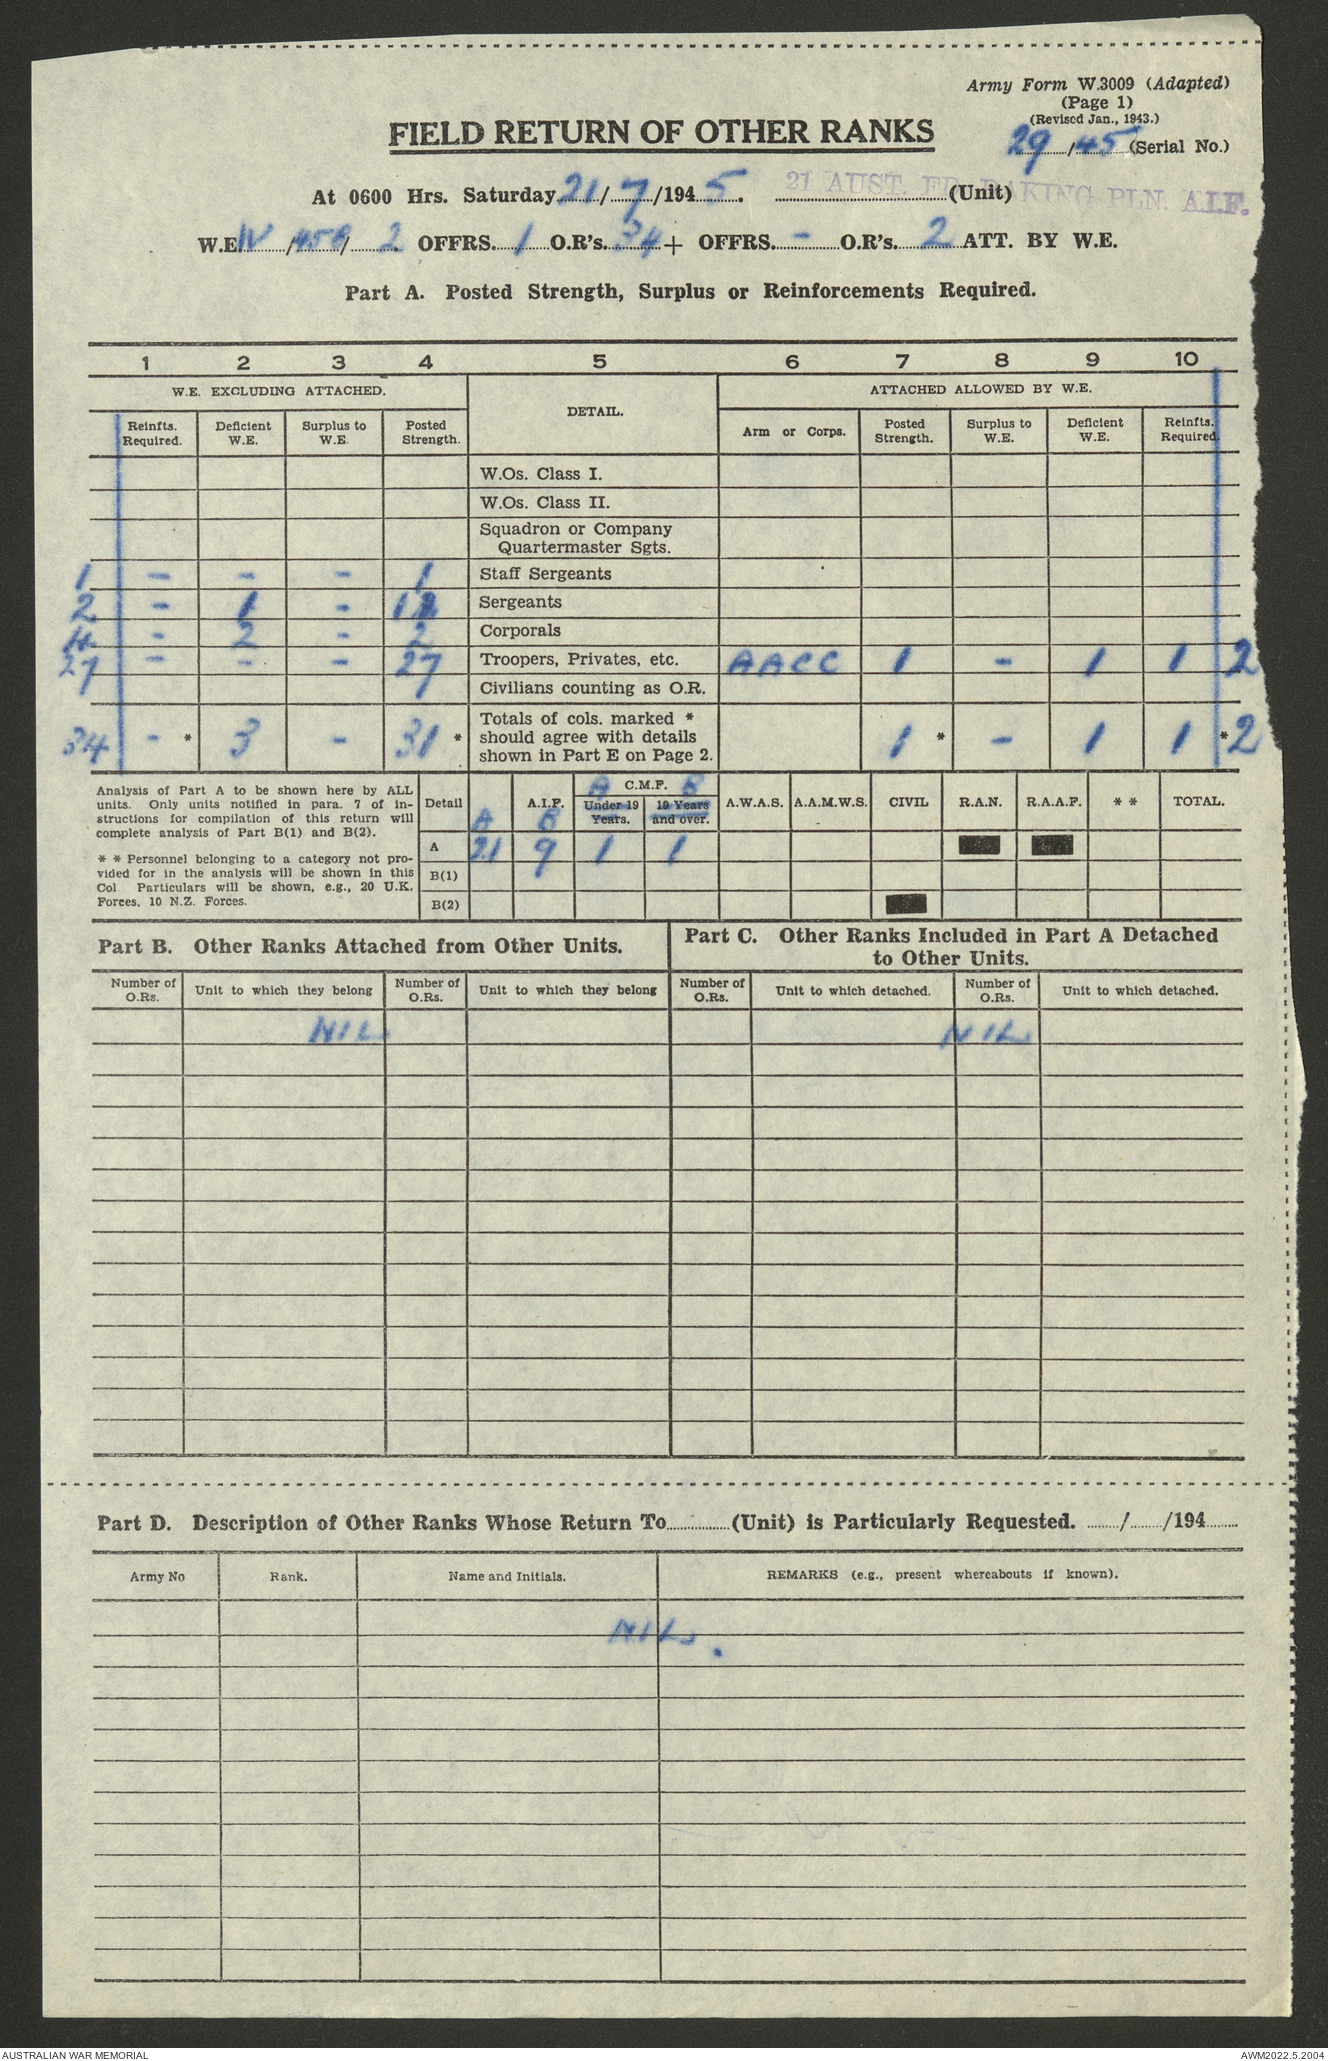 Army Form W.3009 (Adapted)
(Page 1)
(Revised Jan., 1943.)
FIELD RETURN OF OTHER RANKS
29/45 (Serial No.)
At 0600 Hrs. Saturday 21/7/1945. 21 AUST. FD. BAKING PLN. A.I.F. (Unit)
W.E. IV / / 2 OFFRS. 1 O.R's. 34 + OFFRS. - O.R's. 2 ATT. BY W.E.
Part A. Posted Strength, Surplus or Reinforcements Required.
1 2 3 4 5 6 7 8 9 10
W.E. EXCLUDING ATTACHED. DETAIL. ATTACHED ALLOWED BY W.E.
Reinfts. Required. Deficient W.E. Surplus to W.E. Posted Strength. Arm or Corps. Posted Strength. Surplus to W.E. Deficient W.E. Reinfts. Required.
W.Os. Class I.
W.Os. Class II.
Squadron or Company
Quartermaster Sgts.
1 - - - 1 Staff Sergeants
2 - 1 - 1 Sergeants
4 - 2 - 2 Corporals
27 - - - 27 Troopers, Privates, etc. AACC 1 - 1 1 2
Civilians counting as O.R.
34 - * 3 - 31 * Totals of cols. marked * should agree with details shown in Part E on Page 2. 1 * - 1 1 * 2
Analysis of Part A to be shown here by ALL
units. Only units notified in para. 7 of in-
structions for compilation of this return will
complete analysis of Part B(1) and B(2).
* * Personnel belonging to a category not pro-
vided for in the analysis will be shown in this
Col Particulars will be shown, e.g., 20 U.K.
Forces, 10 N.Z. Forces.
Detail A.I.F. C.M.F. A.W.A.S. A.A.M.W.S. CIVIL R.A.N. R.A.A.F. * * TOTAL.
A B A Under 19 Years. B 19 Years and over.
A 21 9 1 1
B(1)
B(2)
Part B. Other Ranks Attached from Other Units.
Part C. Other Ranks Included in Part A Detached
to Other Units.
Number of O.Rs. Unit to which they belong Number of O.Rs. Unit to which they belong Number of O.Rs. Unit to which detached. Number of O.Rs. Unit to which detached.
NIL NIL
Part D. Description of Other Ranks Whose Return To (Unit) is Particularly Requested. / /194
Army No Rank. Name and Initials. REMARKS (e.g., present whereabouts if known).
NIL.
AUSTRALIAN WAR MEMORIAL AWM2022.5.2004